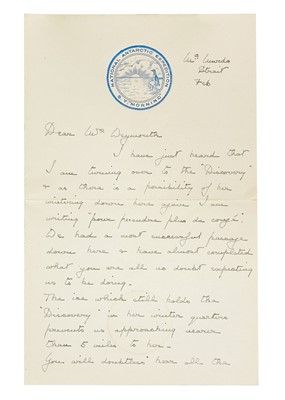 NATIONAL ANTARCTIC EXPEDITION
S.Y. MORNING
McMurdo
Strait
Feb
Dear Mrs Weymouth
I have just heard that
I am turning over to the "Discovery"
& as there is a possibility of her
wintering down here again I am
writing "pour prendre plus de congé"
We had a most successful passage
down here & have almost completed
what you are all no doubt expecting
us to be doing.
The ice which still holds the
"Discovery" in her winter quarters
prevents us approaching nearer
than 5 miles to her.
You will doubtless hear all the